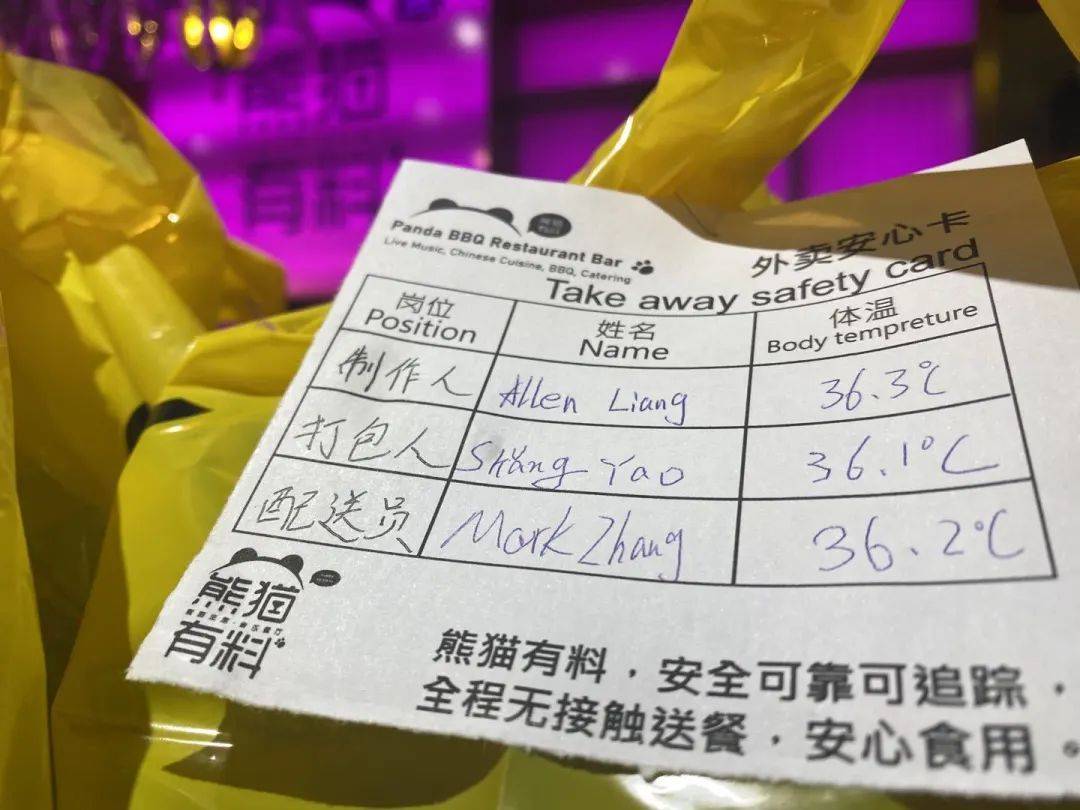 熊猫
有料
Panda BBQ Restaurant Bar
Live Music, Chinese Cuisine, BBQ, Catering
外卖安心卡
Take away safety card
岗位 姓名 体温
Position Name Body tempreture
制作人 Allen Liang 36.3℃
打包人 Shang Yao 36.1℃
配送员 Mark Zhang 36.2℃
熊猫
有料
熊猫有料，安全可靠可追踪，
全程无接触送餐，安心食用。